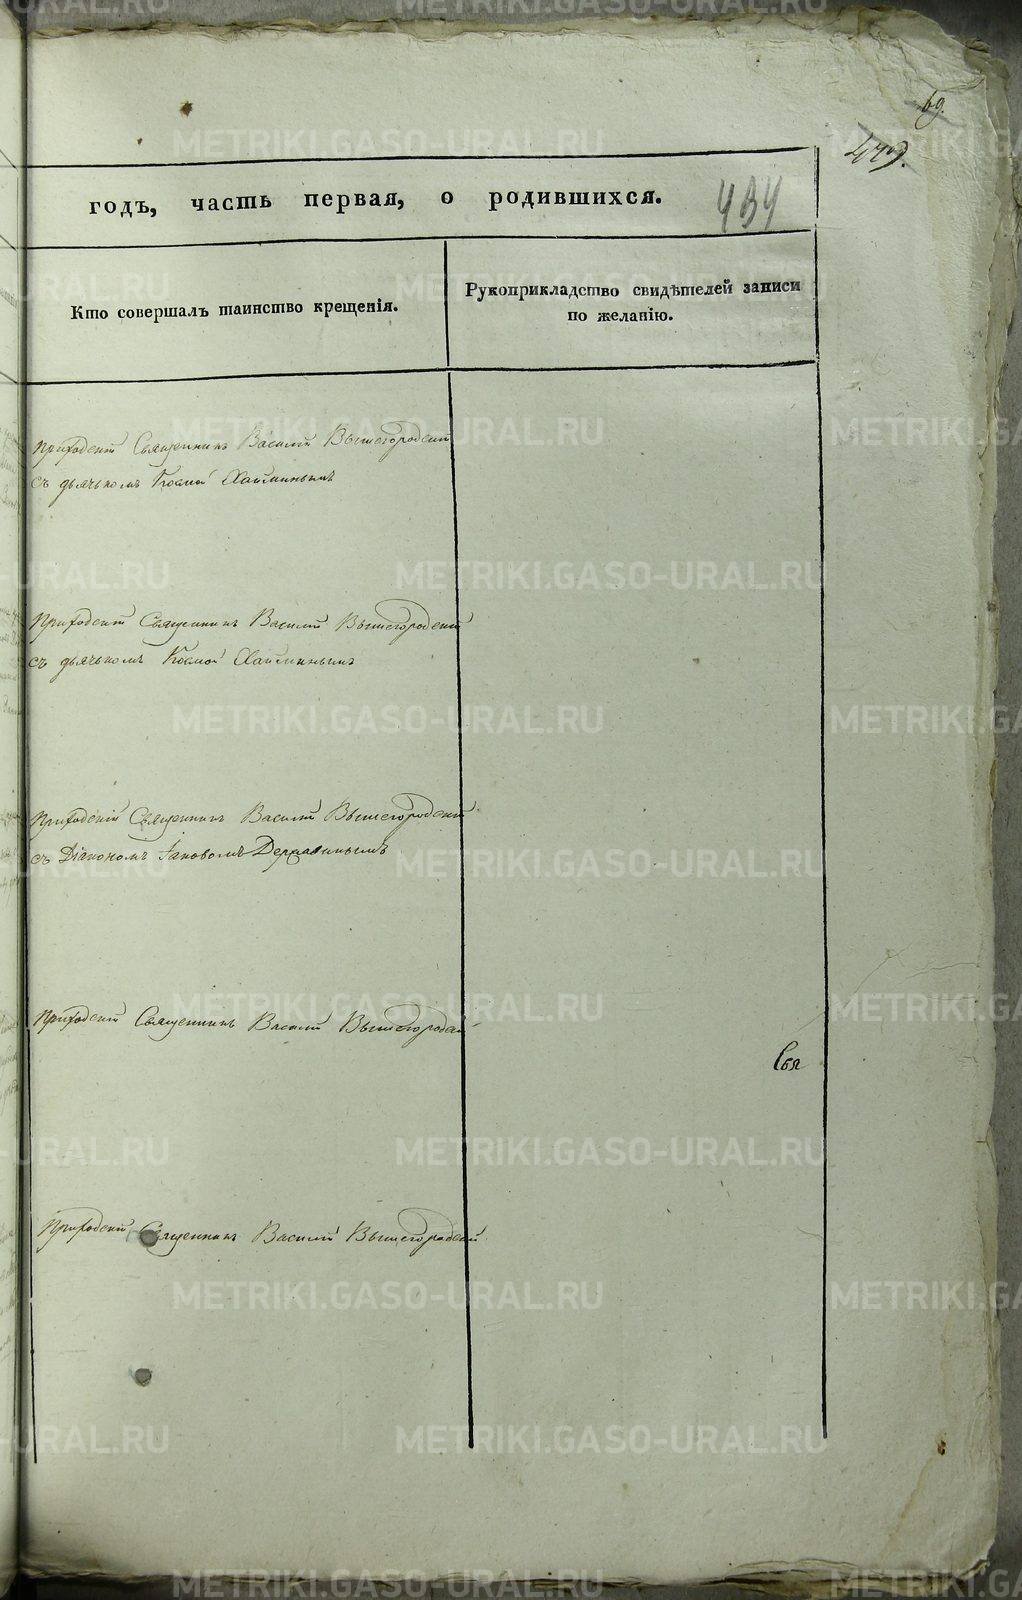 69.
479.
годъ, часть первая, о родившихся.
434
Кто совершалъ таинство крещенія.
Рукоприкладство свидѣтелей записи
по желанію.
Приходскій Священникъ Василій Вышегородскій
съ дьячькомъ Космой
Приходскій Священникъ Василій Вышегородскій
съ дьячькомъ Космой
Приходскій Священникъ Василій Вышегородскій
съ Діакономъ Іаковомъ Державинымъ
Приходскій Священникъ Василій Вышегородскій
Свя
Приходскій Священникъ Василій Вышегородскій
METRIKI.GASO-URAL.RU